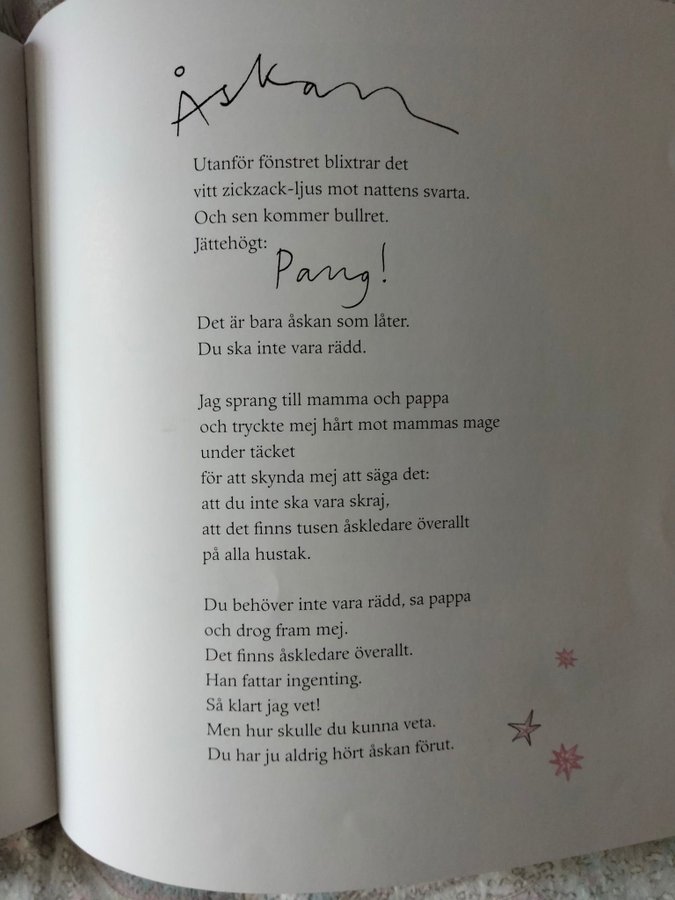 Åskan
Utanför fönstret blixtrar det
vitt zickzack-ljus mot nattens svarta.
Och sen kommer bullret.
Jättehögt:
Pang!
Det är bara åskan som låter.
Du ska inte vara rädd.
Jag sprang till mamma och pappa
och tryckte mej hårt mot mammas mage
under täcket
för att skynda mej att säga det:
att du inte ska vara skraj,
att det finns tusen åskledare överallt
på alla hustak.
Du behöver inte vara rädd, sa pappa
och drog fram mej.
Det finns åskledare överallt.
Han fattar ingenting.
Så klart jag vet!
Men hur skulle du kunna veta.
Du har ju aldrig hört åskan förut.